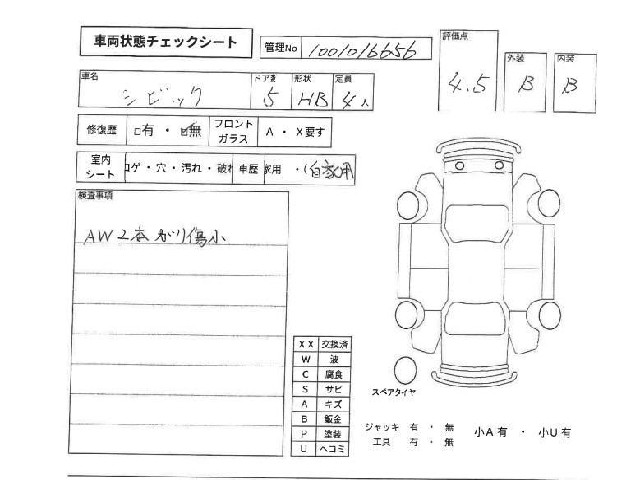 車両状態チェックシート 管理No 1001016656
評価点 4.5 外装 B 内装 B
車名 シビック ドア数 5 形状 HB 定員 4人
修復歴 □有 ・ ☑無 フロントガラス A ・ X要す
室内シート コゲ ・ 穴 ・ 汚れ ・ 破れ 車歴 家用 ・ (自家用
検査事項
AW 2本 ガリ傷小
XX 交換済
W 波
C 腐食
S サビ
A キズ
B 鈑金
P 塗装
U ヘコミ
スペアタイヤ
ジャッキ 有 ・ 無
工具 有 ・ 無
小A 有 ・ 小U 有